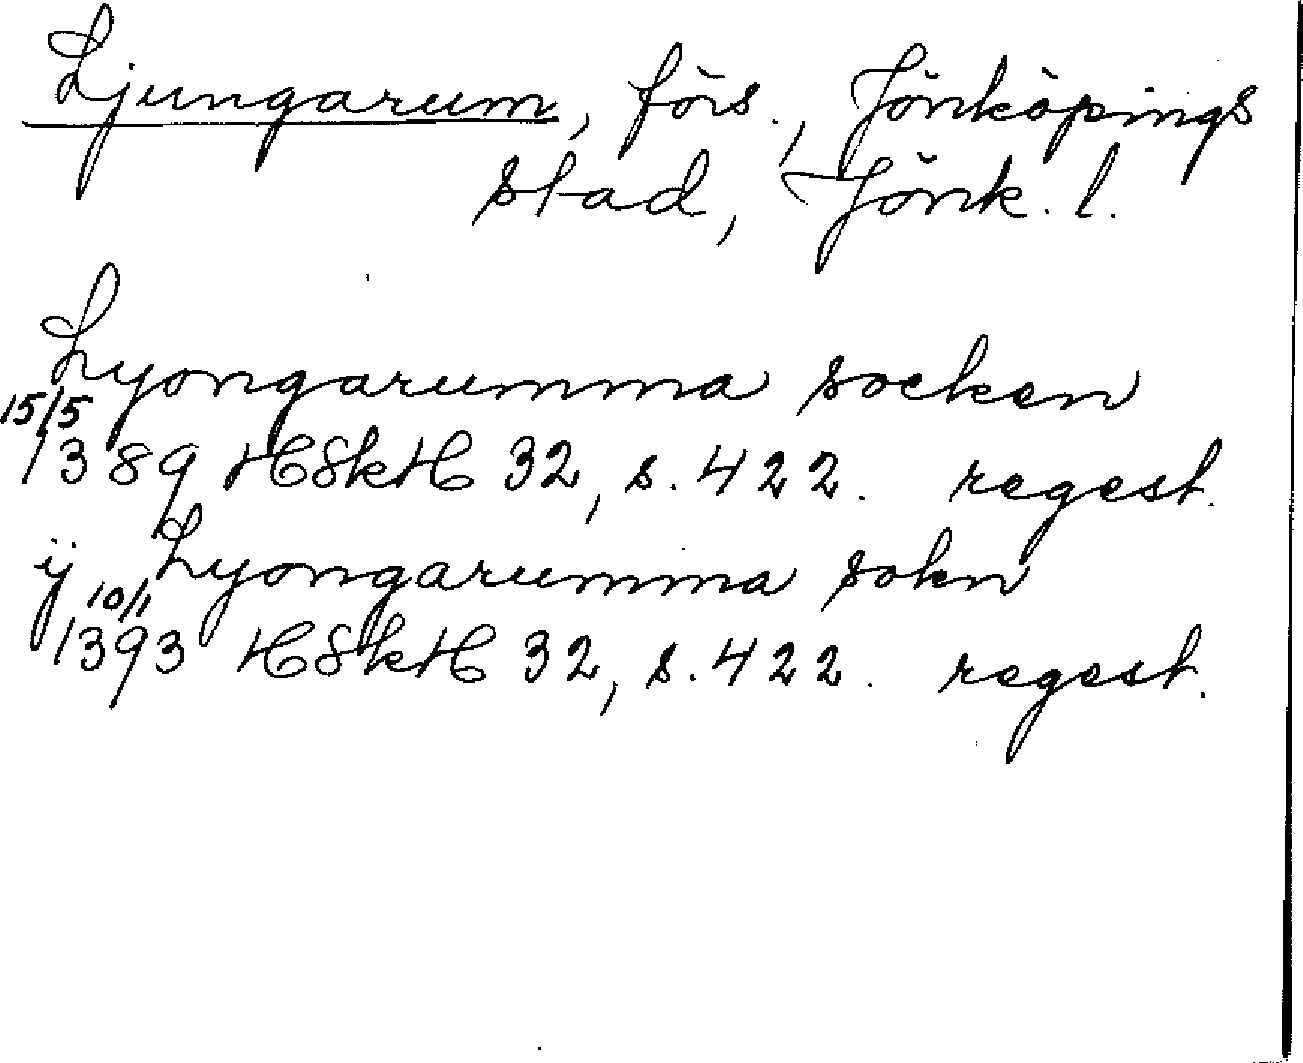 Ljungarum, förs., Jönköpings
stad, Jönk. l.
Lyongarumma socken
15/5
1389 HSkH 32, s. 422. regest.
ÿ Lyongarumma sokn
10/1
1393 HSkH 32, s. 422. regest.